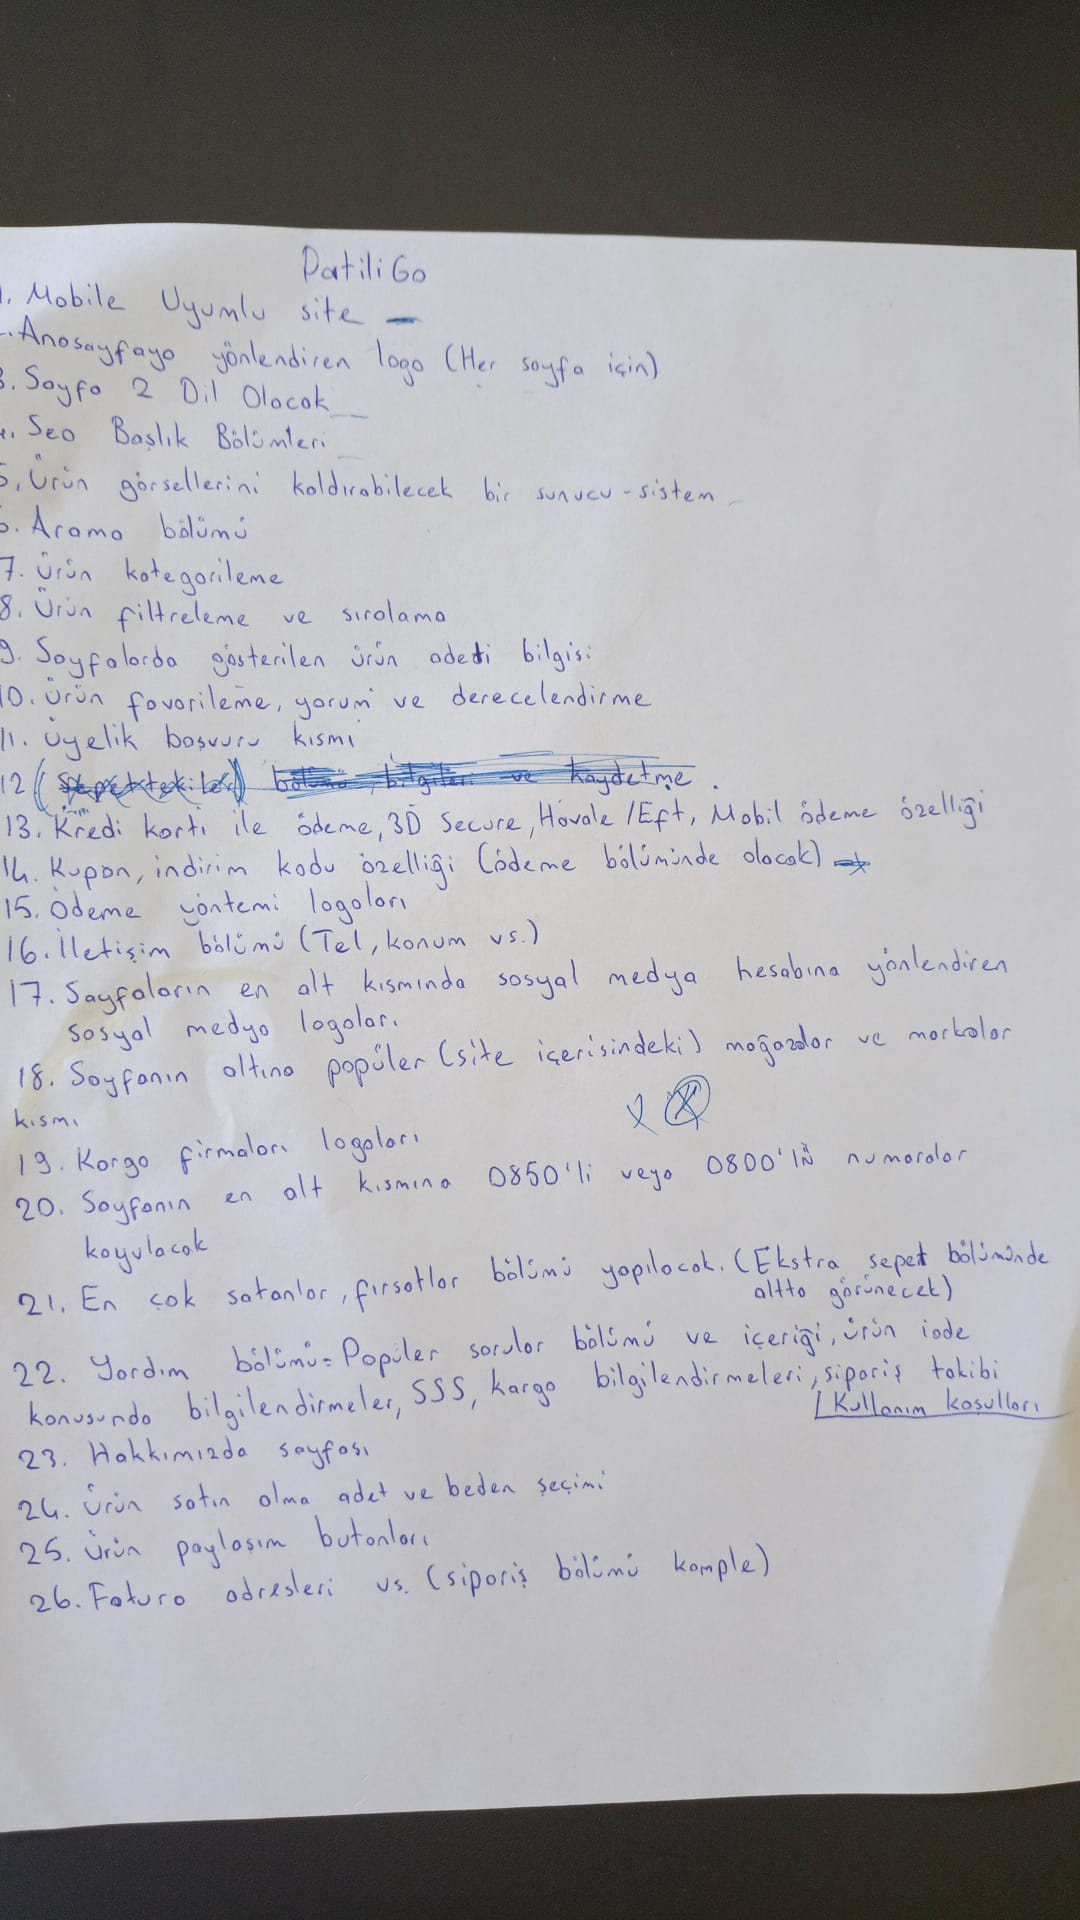 PatiliGo
1. Mobile Uyumlu site
2. Anasayfaya yönlendiren logo (Her sayfa için)
3. Sayfa 2 Dil Olacak
4. Seo Başlık Bölümleri
5. Ürün görsellerini kaldırabilecek bir sunucu-sistem
6. Arama bölümü
7. Ürün kategorileme
8. Ürün filtreleme ve sıralama
9. Sayfalarda gösterilen ürün adedi bilgisi
10. Ürün favorileme, yorum ve derecelendirme
11. Üyelik başvuru kısmı
12 (Sepettekiler) bölümü, bilgileri ve kaydetme.
13. Kredi kartı ile ödeme, 3D Secure, Havale/Eft, Mobil ödeme özelliği
14. Kupon, indirim kodu özelliği (ödeme bölümünde olacak)
15. Ödeme yöntemi logoları
16. İletişim bölümü (Tel, konum vs.)
17. Sayfaların en alt kısmında sosyal medya hesabına yönlendiren
sosyal medya logoları
18. Sayfanın altına popüler (site içerisindeki) mağazalar ve markalar
kısmı
19. Kargo firmaları logoları
20. Sayfanın en alt kısmına 0850'li veya 0800'lü numaralar
koyulacak
21. En çok satanlar, fırsatlar bölümü yapılacak. (Ekstra sepet bölümünde
altta görünecek)
22. Yardım bölümü= Popüler sorular bölümü ve içeriği, ürün iade
konusunda bilgilendirmeler, SSS, kargo bilgilendirmeleri, sipariş takibi
Kullanım koşulları
23. Hakkımızda sayfası
24. Ürün satın alma adet ve beden seçimi
25. Ürün paylaşım butonları
26. Fatura adresleri vs. (sipariş bölümü komple)